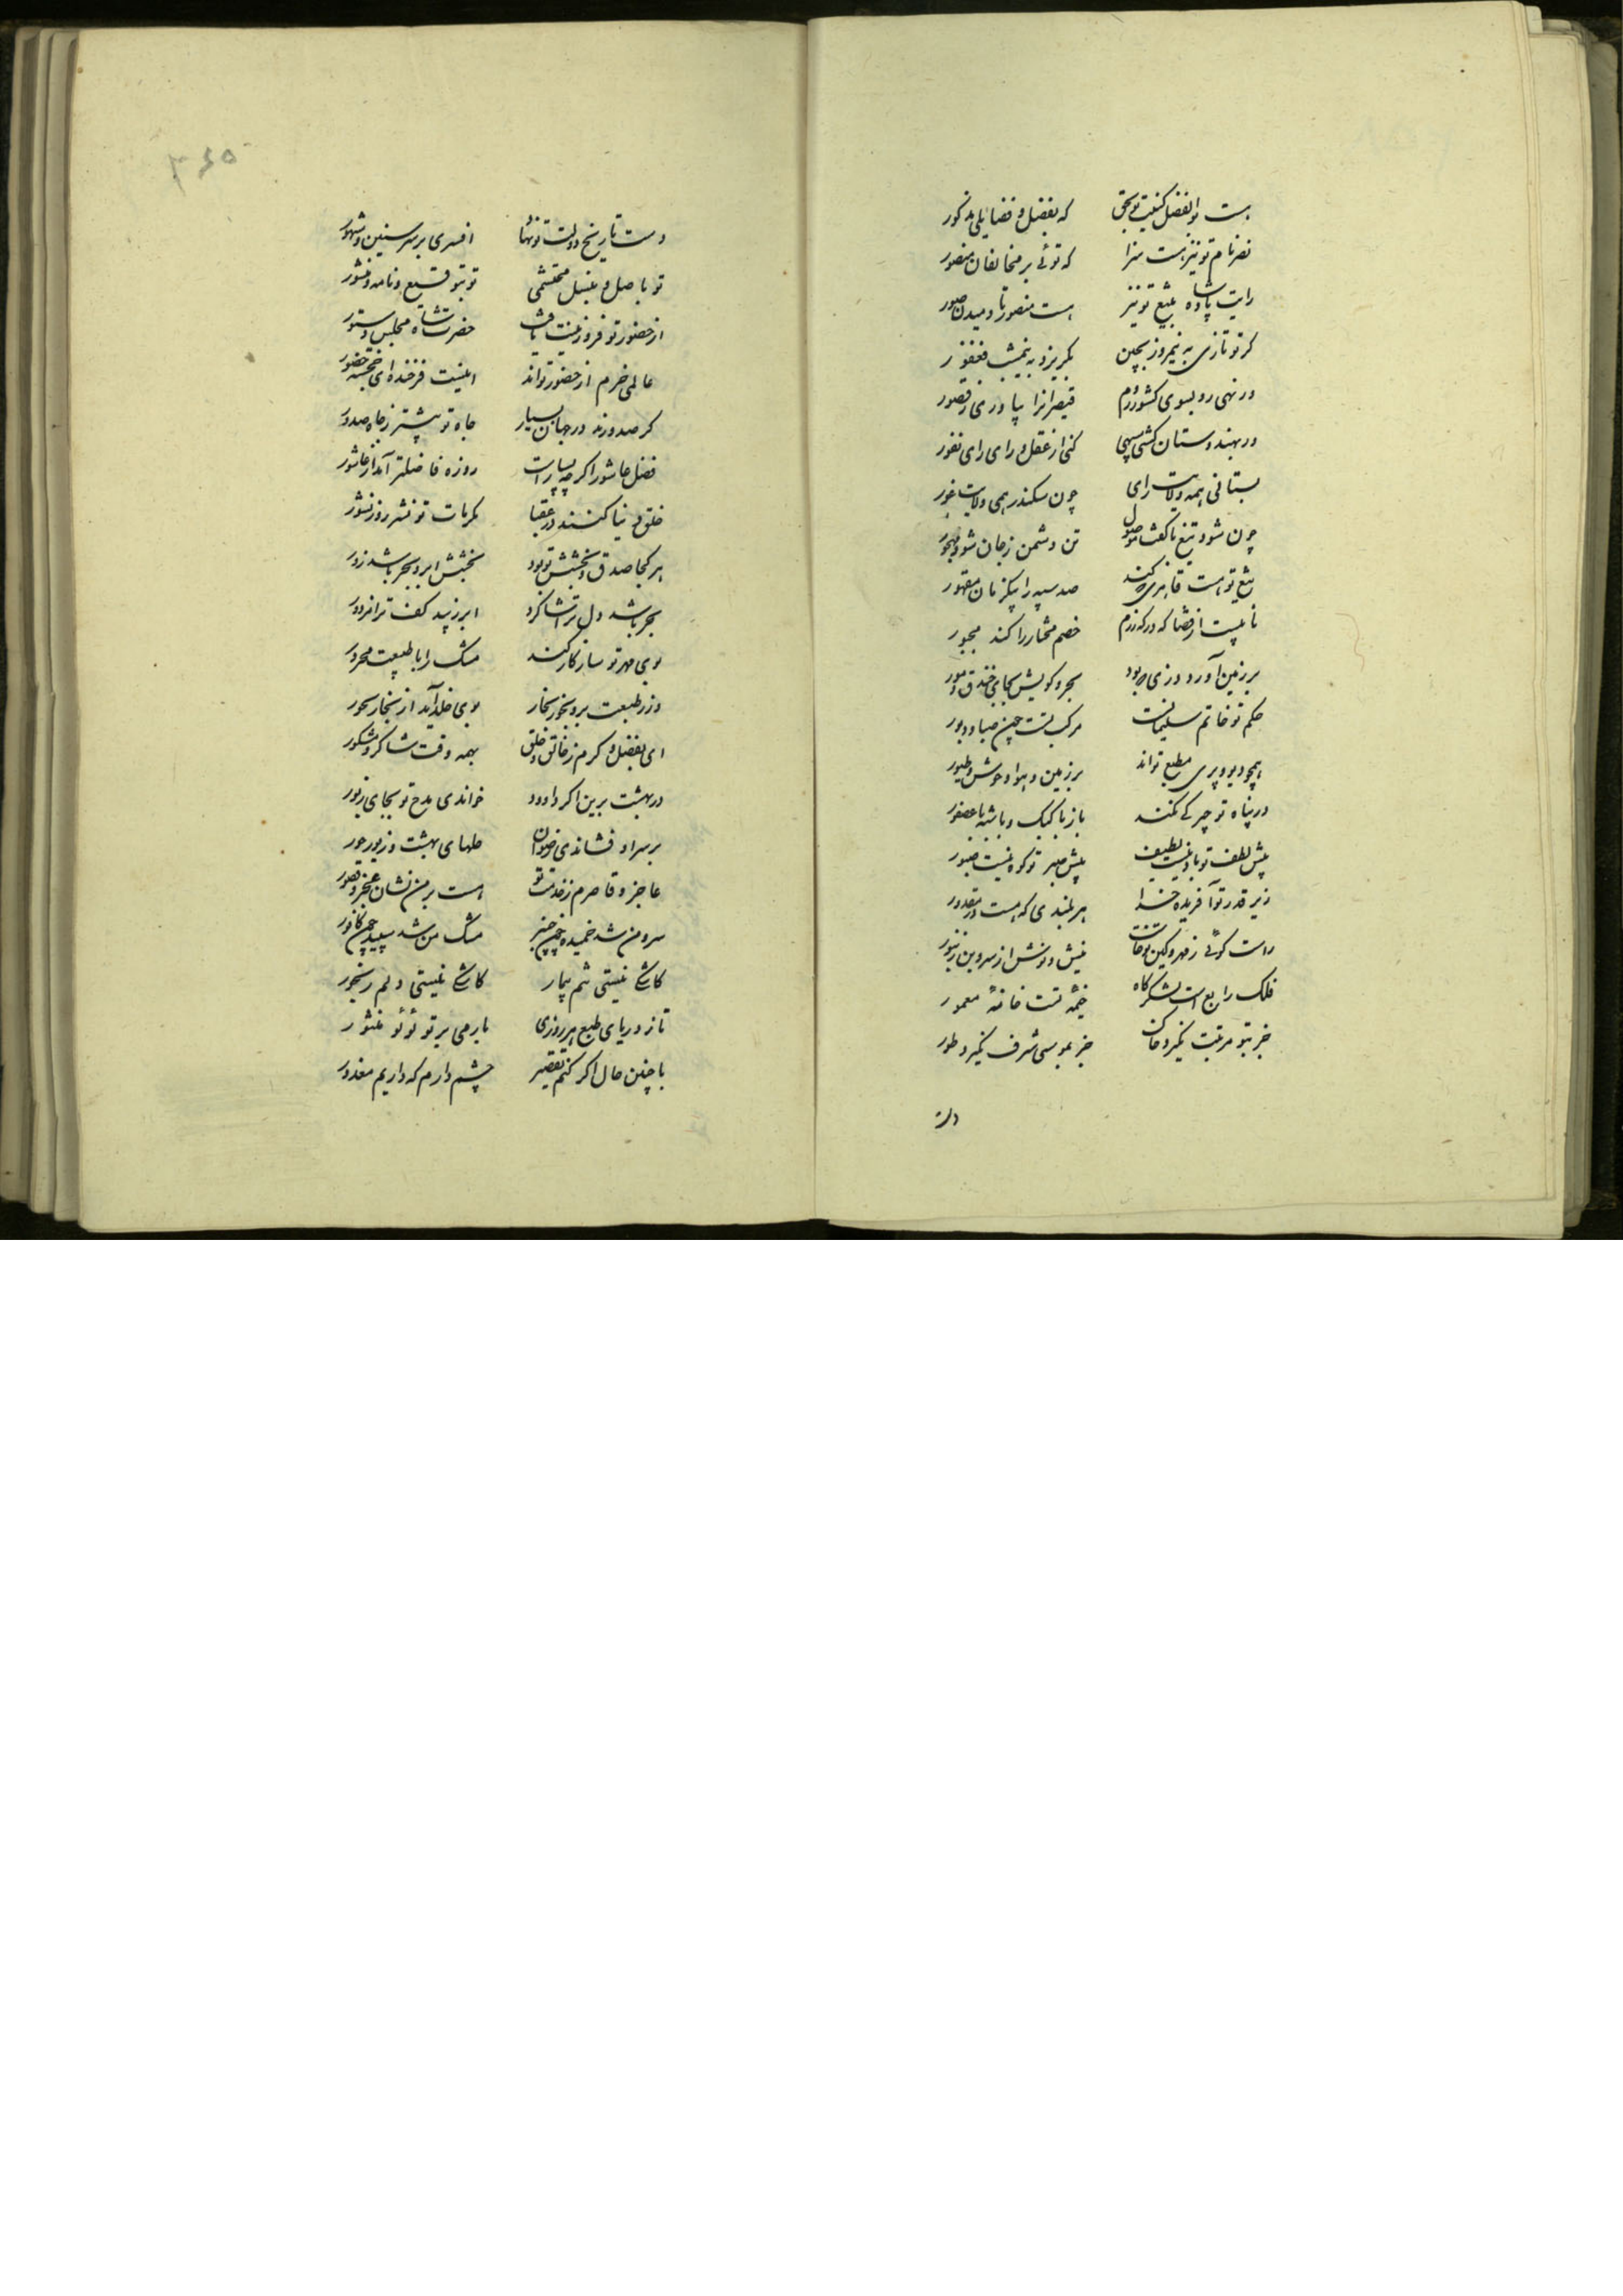 هست بوالفضل کنیت تو بحق که بفضل و فضایلی مذکور
نصر نام تو نیز هست سزا که توئی بر مخالفان منصور
رایت پادشاه بتیغ تو نیز هست منصور تا دمیدن صور
کر تو تازی به نیمروز بچین بکریزد به نیمشب فغفور
ور نهی رو بسوی کشور روم قیصرانرا بیاوری ز قصور
ور بهندوستان کشی سپهی کنی از عقل و رای رای نفور
بستانی همه ولایت رای چون سکندر همی ولایت غور
چون شود تیغ با کفت موصول تن دشمن ز جان شود مهجور
تیغ تو هست قاهری که کند صد سپه را بیکزمان مقهور
نایبست از قضا که در که رزم خصم مختار را کند مجبور
بر زمین آورد دزی که بود بحر و کویش بجای خندق و سور
حکم تو خاتم سلیمانست مرکب تست چون صبا و دبور
همچو دیو و پری مطیع تواند بر زمین و هوا وحوش و طیور
در پناه تو چیرکی نکنند باز با کبک و باشه با عصفور
پیش لطف تو باد نیست لطیف پیش صبر تو کوه نیست صبور
زیر قدر تو آفریده خدا هر بلندی که هست در مقدور
راست کوئی ز مهر و کین تو خاست نیش و نوش از سر و بن زنبور
فلک رابع است لشکرگاه خیمهٔ تست خانهٔ معمور
جز بتو مرتبت نگیرد خان جز بموسی شرف نگیرد طور
دست
دست تاریخ دولت تو نها افسری بر سر سنین و شهور
تو باصل و بنسل محتشمی تو بتوقیع و نامه و منشور
از حضور تو فر و زینت یافت حضرت شاه و مجلس دستور
عالمی خرم از حضور تواند اینست فرخنده ای خجسته حضور
کر صدورند در جهان بسیار جاه تو بیشتر ز جاه صدور
فضل عاشورا کرچه بسیار است روزه فاضلتر آمد از عاشور
خلق دنیا کنند در عقبا مکرمات تو نشر روز نشور
هر کجا صدق و بخشش تو بود بخشش ابر و بحر باشد زور
بحر باشد دل ترا شاکرد ابر زیبد کف ترا مزدور
بوی مهر تو سازکار کند مشک را با طبیعت محرور
وزد طبعت برو بخور بخار بوی خلد آید از بخار بحور
ای بفضل و کرم ز خالق و خلق بهمه وقت شاکر و مشکور
در بهشت برین اکر داوود خواندی مدح تو بجای زبور
بر سر او فشاندی رضوان حلهای بهشت و زیور حور
عاجز و قاصرم ز خدمت تو هست بر من نشان عجز و قصور
سرو من شد خمیده چون چنبر مشک من شد سپید چون کافور
کاشکی نیستی تنم بیمار کاشکی نیستی دلم رنجور
تا ز دریای طبع هر روزی بارمی بر تو لؤلؤ منثور
با چنین حال اکر کنم تقصیر چشم دارم که داریم معذور